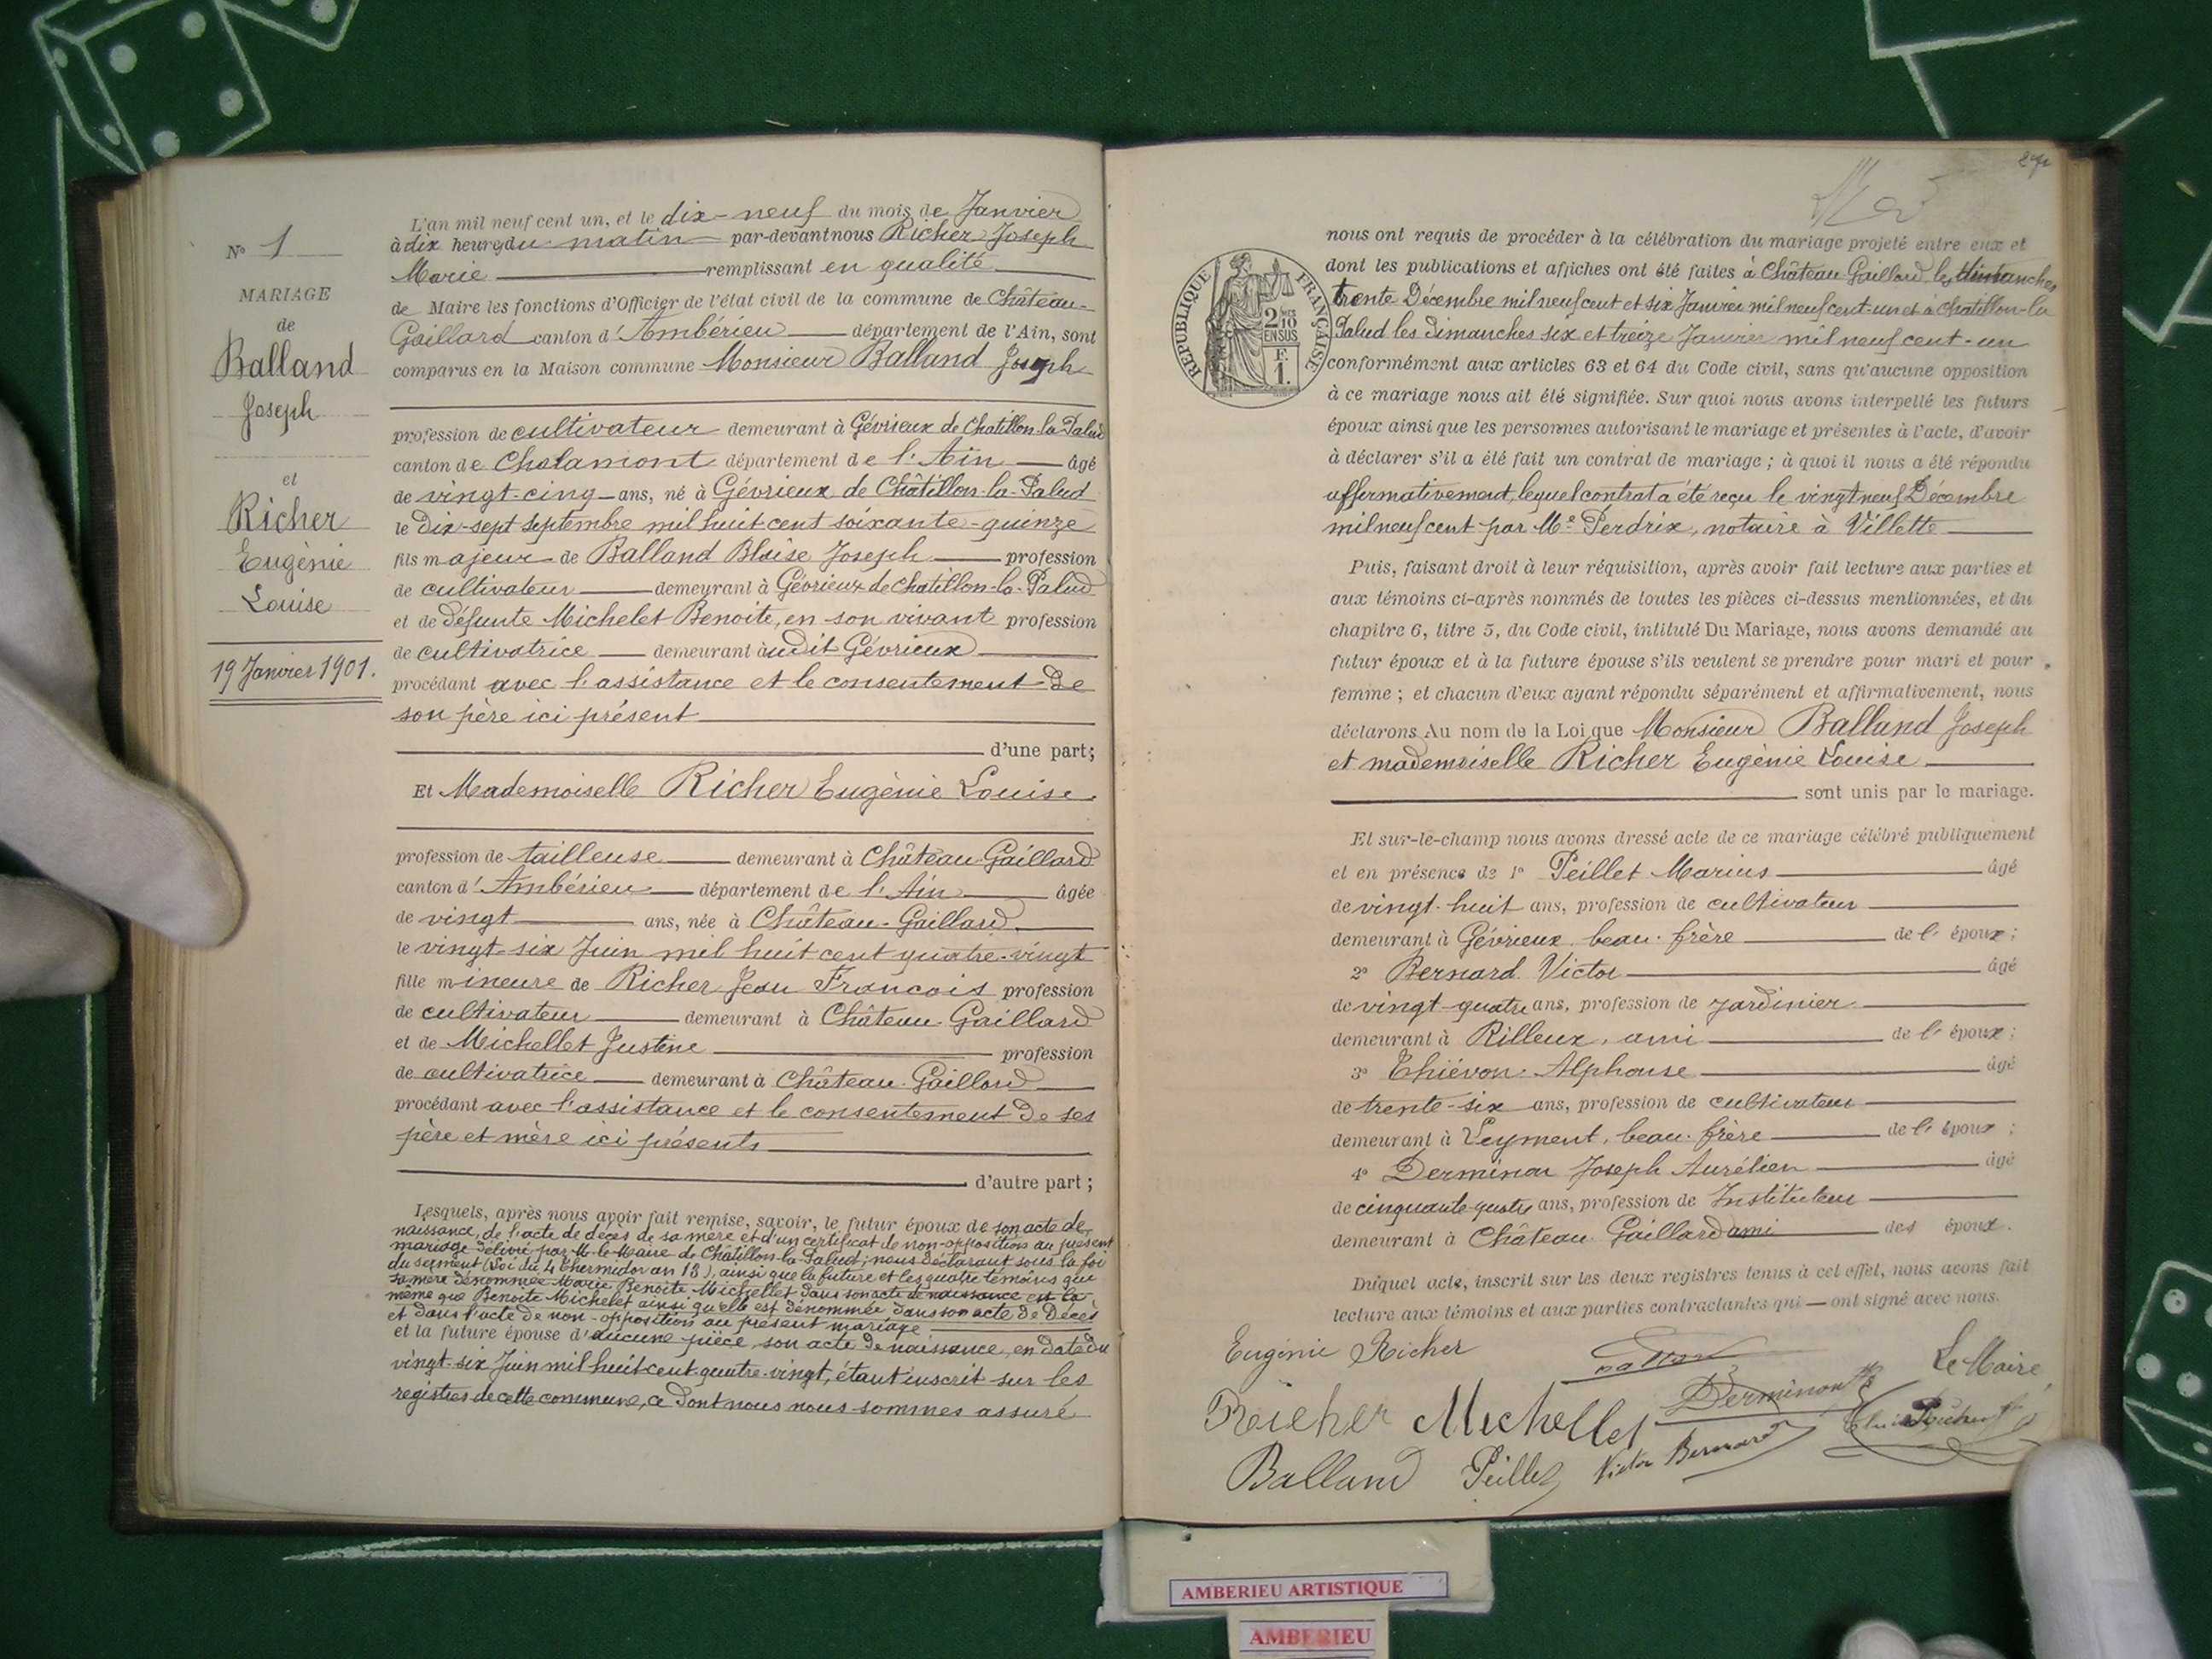 N° 1
MARIAGE
de
Balland
Joseph
et
Richer
Eugènie
Louise
19 Janvier 1901.
L'an mil neuf cent un, et le dix-neuf du mois de Janvier
à dix heures du matin par-devant nous Richer Joseph
Marie remplissant en qualité
de Maire les fonctions d'Officier de l'état civil de la commune de Château-
Gaillard canton d'Ambérieu département de l'Ain, sont
comparus en la Maison commune Monsieur Balland Joseph
profession de cultivateur demeurant à Gévrieux de Chatillon-la-Palud
canton de Chalamont département de l'Ain âgé
de vingt-cinq ans, né à Gévrieux de Châtillon-la-Palud
le dix-sept septembre mil huit cent soixante-quinze
fils majeur de Balland Blaise Joseph profession
de cultivateur demeurant à Gévrieux de Chatillon-la-Palud
et de défunte Michelet Benoite, en son vivant profession
de cultivatrice demeurant audit Gévrieux
procédant avec l'assistance et le consentement de
son père ici présent
d'une part;
Et Mademoiselle Richer Eugènie Louise
profession de tailleuse demeurant à Château-Gaillard
canton d'Ambérieu département de l'Ain âgée
de vingt ans, née à Château-Gaillard
le vingt-six Juin mil huit cent quatre-vingt
fille mineure de Richer Jean Francois profession
de cultivateur demeurant à Château-Gaillard
et de Michellet Justine profession
de cultivatrice demeurant à Château-Gaillard
procédant avec l'assistance et le consentement de ses
père et mère ici présents
d'autre part;
Lesquels, après nous avoir fait remise, savoir, le futur époux de son acte de
naissance, de l'acte de décès de sa mère et d'un certificat de non-opposition au présent
mariage délivré par M. le Maire de Châtillon-la-Palud; nous déclarant sous la foi
du serment (Loi du 4 thermidor an 13), ainsi que la future et les quatre témoins que
sa mère dénommée Marie Benoite Michellet dans son acte de naissance est la
même que Benoite Michelet ainsi qu'elle est dénommée dans son acte de Décès
et dans l'acte de non-opposition au présent mariage
et la future épouse d'aucune pièce, son acte de naissance, en date du
vingt-six Juin mil huit cent quatre-vingt, étant inscrit sur les
registres de cette commune, ce dont nous nous sommes assuré
nous ont requis de procéder à la célébration du mariage projeté entre eux et
dont les publications et affiches ont été faites à Château-Gaillard les dimanches
trente Décembre mil neuf cent et six Janvier mil neuf cent-un et à Chatillon-la
Palud les dimanches six et treize Janvier mil neuf cent-un
conformément aux articles 63 et 64 du Code civil, sans qu'aucune opposition
à ce mariage nous ait été signifiée. Sur quoi nous avons interpellé les futurs
époux ainsi que les personnes autorisant le mariage et présentes à l'acte, d'avoir
à déclarer s'il a été fait un contrat de mariage; à quoi il nous a été répondu
affirmativement, lequel contrat a été reçu le vingt neuf Décembre
mil neuf cent par Me Perdrix, notaire à Villette
Puis, faisant droit à leur réquisition, après avoir fait lecture aux parties et
aux témoins ci-après nommés de toutes les pièces ci-dessus mentionnées, et du
chapitre 6, titre 5, du Code civil, intitulé Du Mariage, nous avons demandé au
futur époux et à la future épouse s'ils veulent se prendre pour mari et pour
femme; et chacun d'eux ayant répondu séparément et affirmativement, nous
déclarons Au nom de la Loi que Monsieur Balland Joseph
et mademoiselle Richer Eugènie Louise
sont unis par le mariage.
Et sur-le-champ nous avons dressé acte de ce mariage célébré publiquement
et en présence de 1° Peillet Marius âgé
de vingt-huit ans, profession de cultivateur
demeurant à Gévrieux beau-frère de l'époux;
2° Bernard Victor âgé
de vingt-quatre ans, profession de jardinier
demeurant à Rilleux, ami de l'époux;
3° Thiévon Alphonse âgé
de trente-six ans, profession de cultivateur
demeurant à Leyment, beau-frère de l'époux;
4° Derminon Joseph Aurélien âgé
de cinquante-quatre ans, profession de Instituteur
demeurant à Château Gaillard ami des époux.
Duquel acte, inscrit sur les deux registres tenus à cet effet, nous avons fait
lecture aux témoins et aux parties contractantes qui ont signé avec nous.
RÉPUBLIQUE FRANÇAISE
2 10
EN SUS
F.
1.
Eugénie Richer
Le Maire
Richer Michellet Derminon
Balland Peillet Victor Bernard
AMBERIEU ARTISTIQUE
AMBERIEU